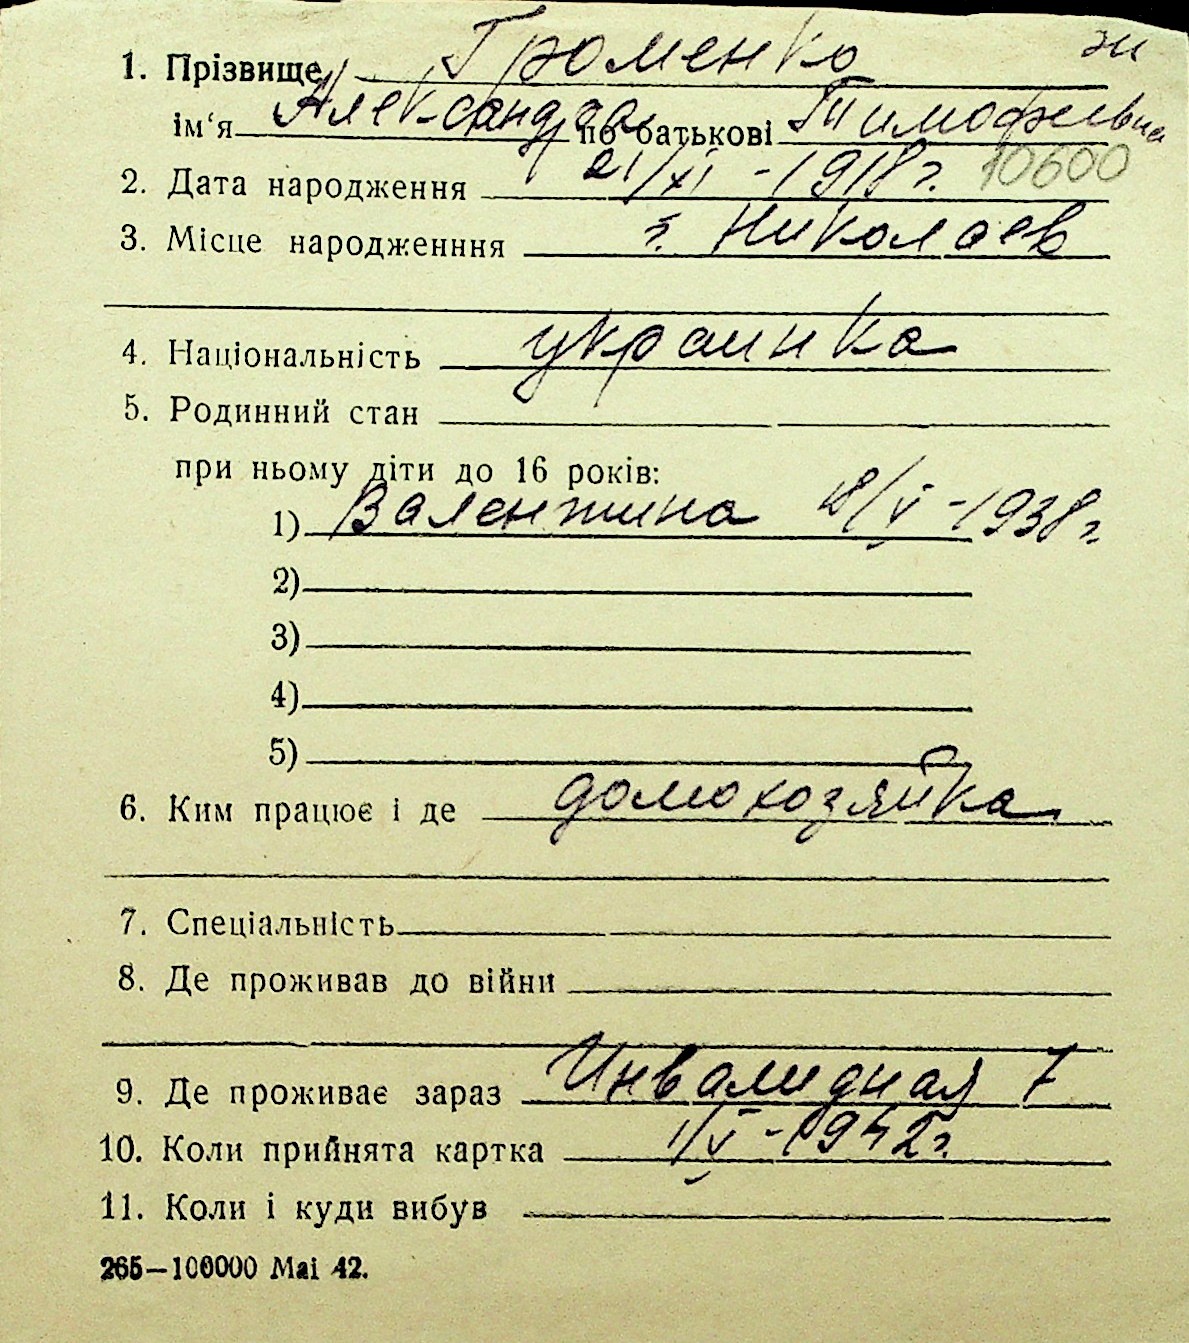 1. Прізвище Громенко
ім‘я Александра по батькові Тимофеевна
2. Дата народження 21/XI - 1918 г. 10600
3. Місце народженння г. Николаев
4. Національність украинка
5. Родинний стан
при ньому діти до 16 років:
1) Валентина 18/V - 1938 г.
2)
3)
4)
5)
6. Ким працює і де домохозяйка
7. Спеціальність
8. Де проживав до війни
9. Де проживає зараз Инвалидная 7
10. Коли прийнята картка 1/V - 1942 г.
11. Коли і куди вибув
265—100000 Mai 42.